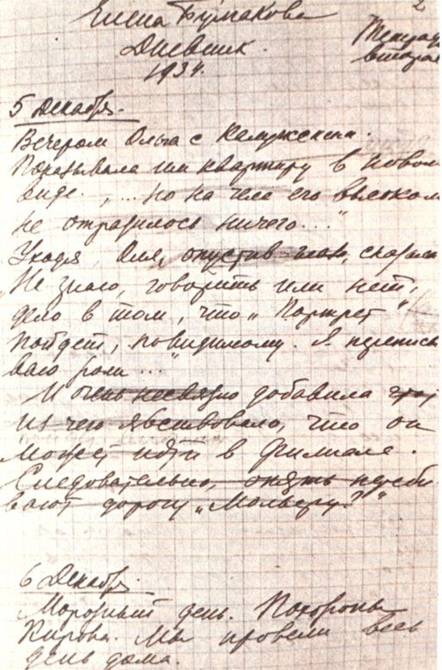 Елена Булгакова
2
Дневник.
Тетрадь
вторая
1934.
5 Декабря.
Вечером Ольга с Калужским.
Показывала им квартиру в новом
виде. „... но на челе его высоком
не отразилось ничего..."
Уходя, Оля, опустив глаза, сказала
„Не знаю, говорить или нет,
дело в том, что „Портрет"
пойдет, повидимому. Я переписы
вала роли..."
И очень несвязно добавила что,
из чего явствовало, что он
может идти в филиале.
Следовательно, опять переби
вают дорогу „Мольеру?"
6 Декабря.
Морозный день. Похороны
Кирова. Мы провели весь
день дома.